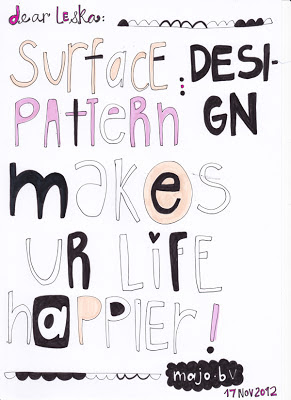 dear Leska:
Surface : DESI-
PATTERN GN
makes
UR LiFE
happier!
majo.bv
17 NOV 2012